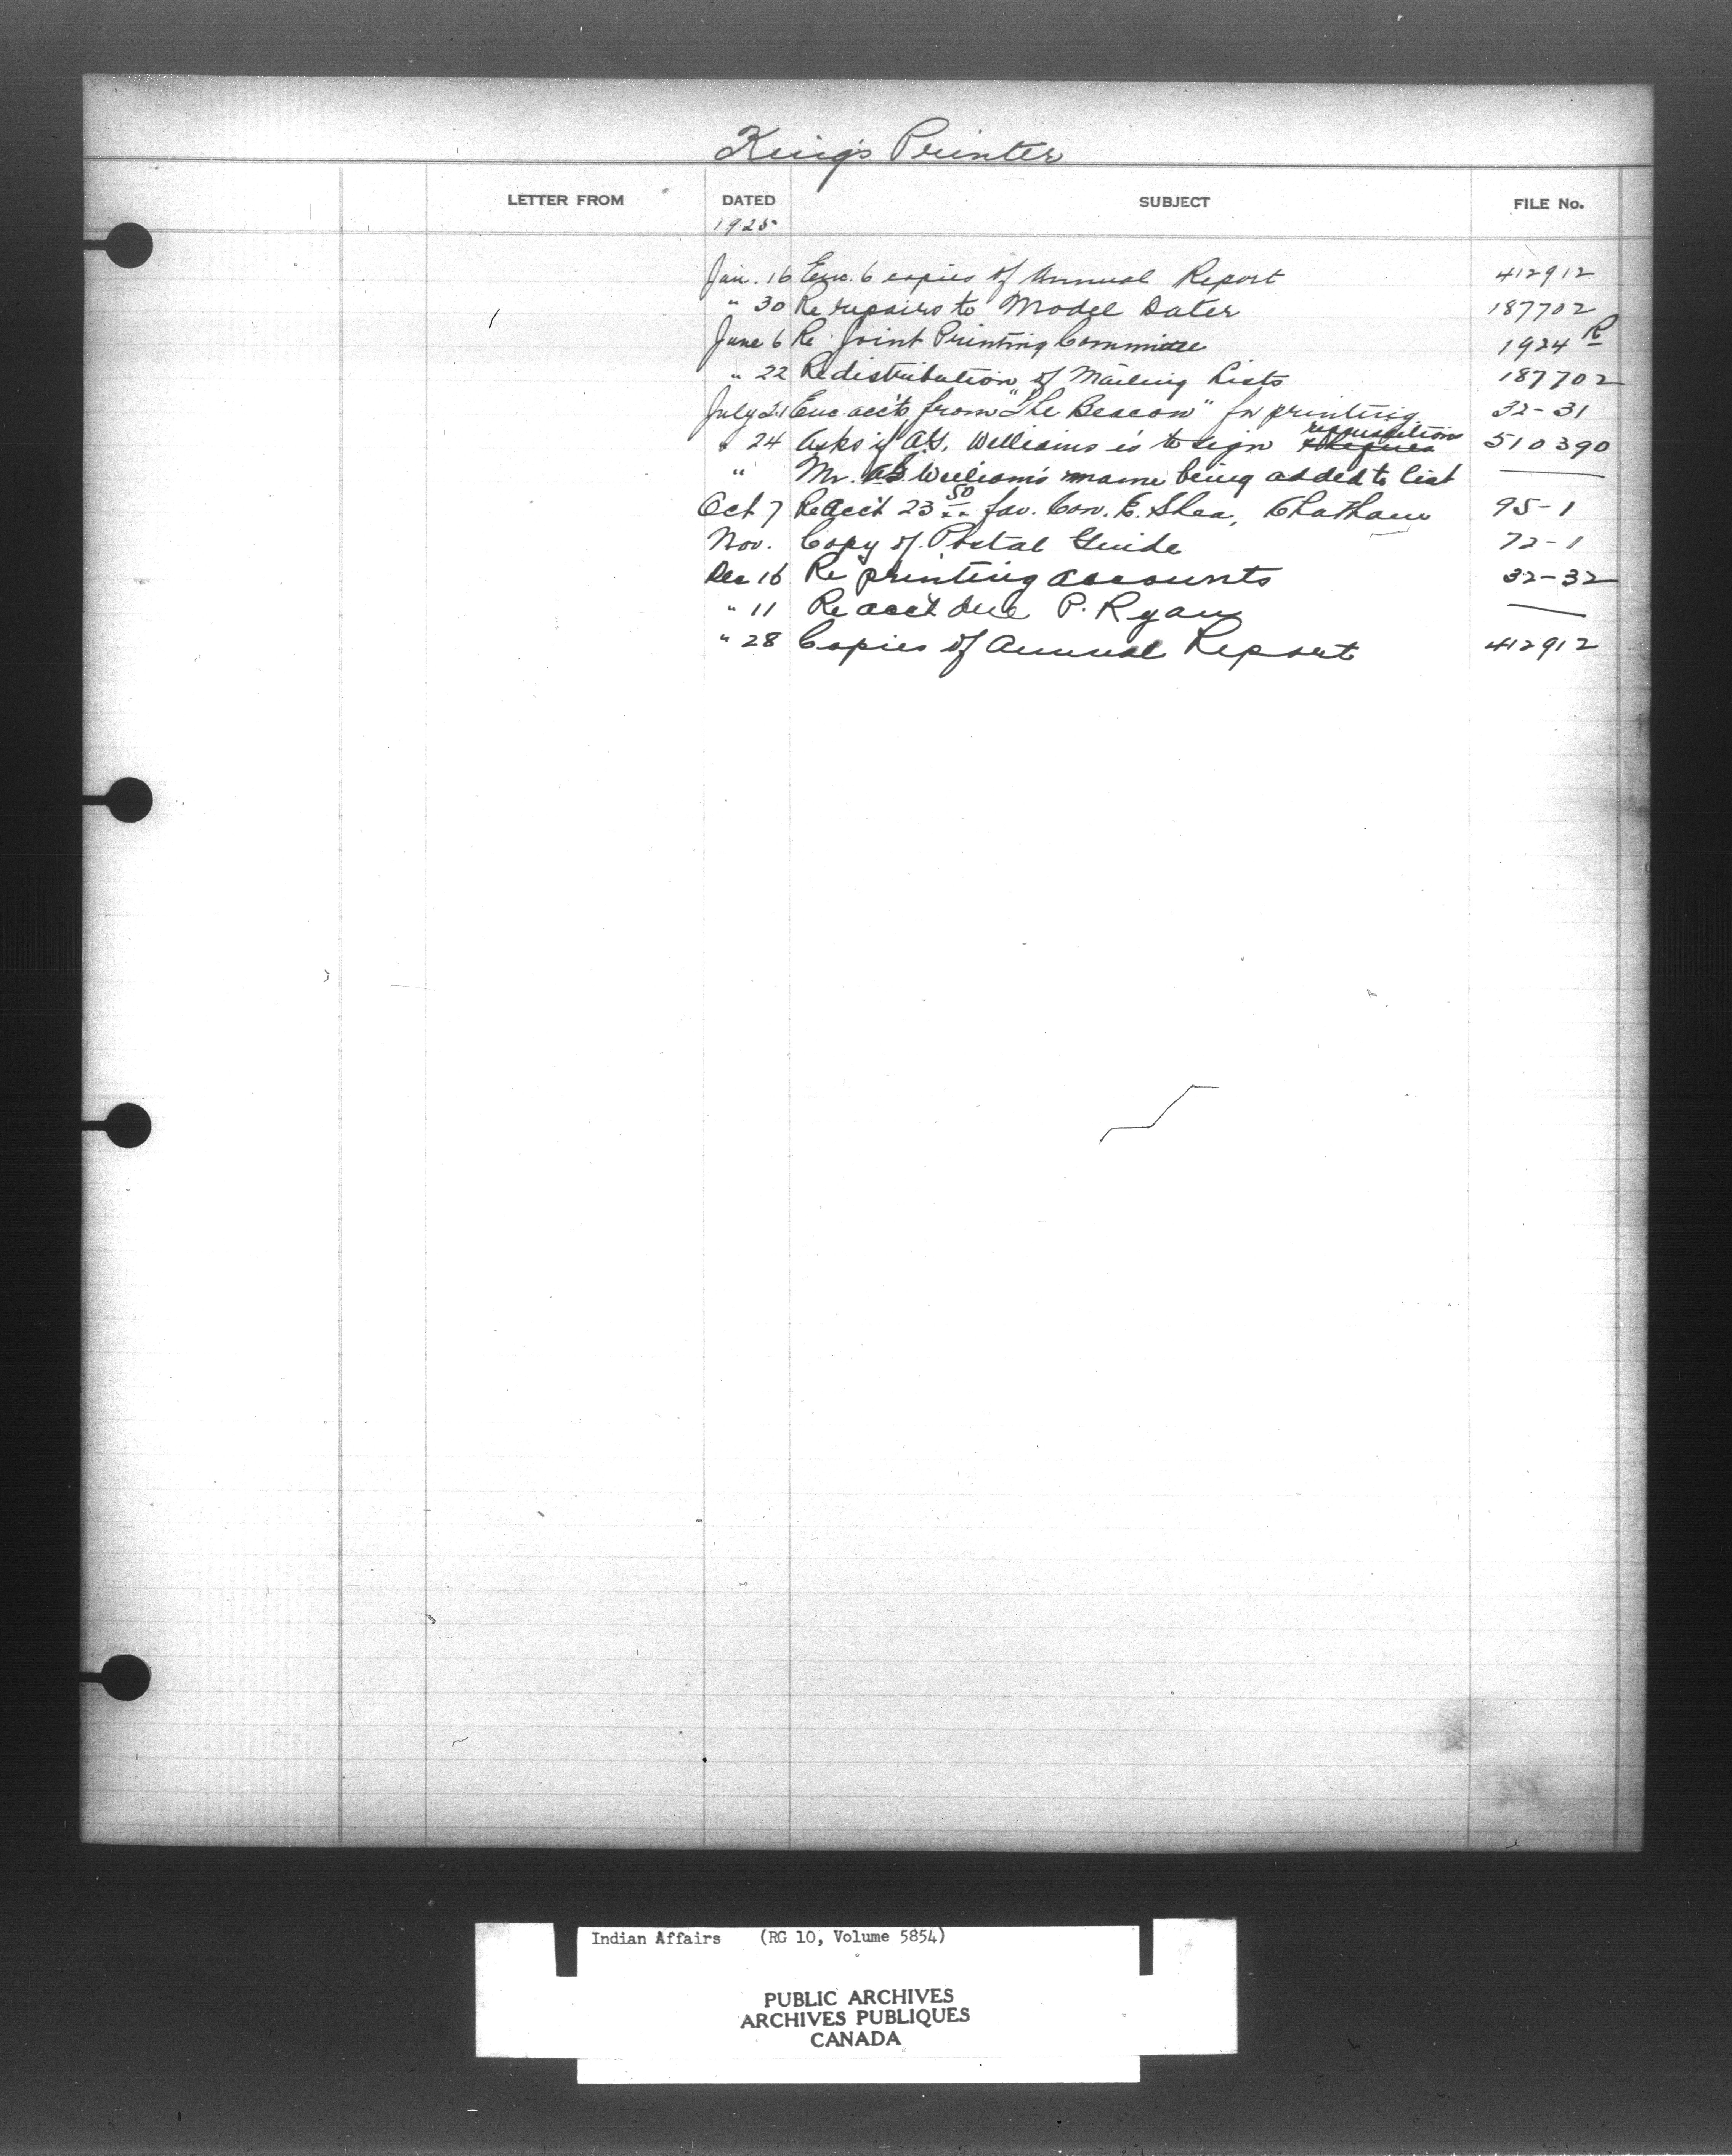 King's Printer
LETTER FROM DATED SUBJECT FILE No.
1925
Jan. 16 Enc. 6 copies of Annual Report 412912
" 30 Re repairs to Model Dater 187702
June 6 Re Joint Printing Committee 1924 R
" 22 Redistribution of Mailing Lists 187702
July 21 Enc. acc'ts from "The Beacon" for printing 32-31
requisitions
" 24 Asks if A.S. Williams is to sign 510390
" Mr. A.S. Williams name being added to list —
Oct 7 Re acc't 23 50 fav. Con. E. Shea, Chatham 95-1
Nov. Copy of Postal Guide 72-1
Dec 16 Re printing accounts 32-32
" 11 Re acc't due P. Ryan —
" 28 Copies of Annual Report 412912
Indian Affairs (RG 10, Volume 5854)
PUBLIC ARCHIVES
ARCHIVES PUBLIQUES
CANADA